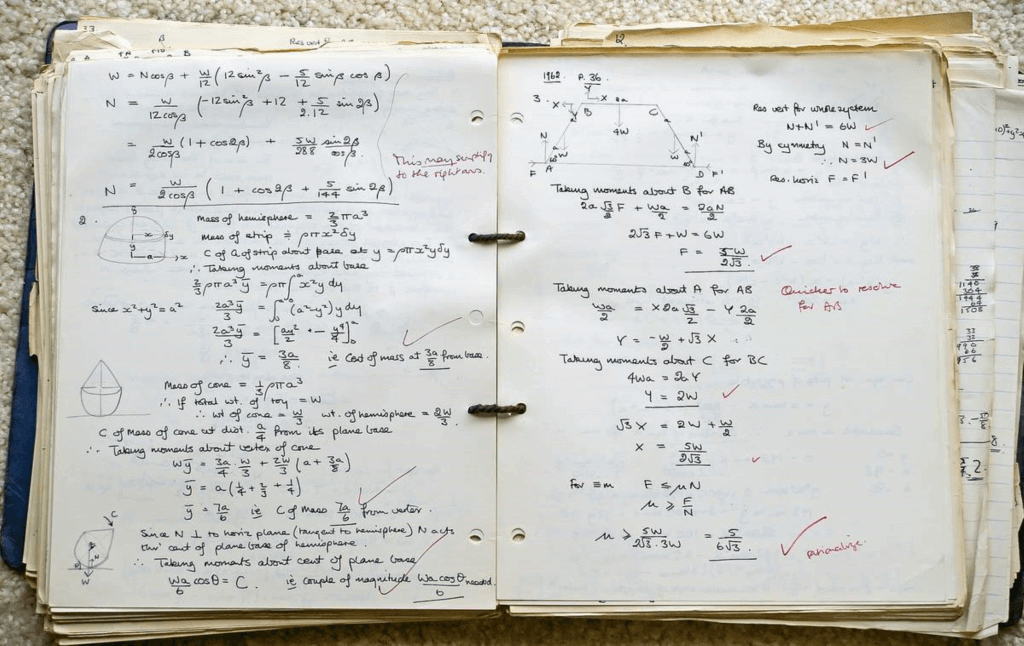 33
β
B
Res vert
W = Ncosβ + W/12 (12 sin²β − 5/12 sinβ cosβ)
N = W/12cosβ (−12 sin²β + 12 + 5/2.12 sin2β)
= W/2cosβ (1 + cos2β) + 5W/288 sin2β/cosβ.
This may simplify
to the right ans.
N = W/2cosβ (1 + cos2β + 5/144 sin2β)
2.
Mass of hemisphere = 2/3 πa³
Mass of strip ≑ ρπx²δy
C of G of strip about base at y = ρπx²yδy
∴ Taking moments about base
2/3 ρπa³ȳ = ρπ∫x²y dy
Since x²+y²=a² 2a³ȳ/3 = ∫₀ᵃ (a²−y²)y dy
2a³ȳ/3 = [ay²/2 − y⁴/4]₀ᵃ
∴ ȳ = 3a/8. ie Cent of mass at 3a/8 from base.
Mass of cone = 1/3 ρπa³
∴ If total wt. of toy = W
∴ wt of cone = W/3 wt. of hemisphere = 2W/3.
C of Mass of cone at dist. a/4 from its plane base
∴ Taking moments about vertex of cone
Wȳ = 3a/4 . W/3 + 2W/3 (a + 3a/8)
ȳ = a(1/4 + 2/3 + 1/4)
ȳ = 7a/6 ie C of Mass 7a/6 from vertex.
C
Since N ⊥ to horiz plane (tangent to hemisphere) N acts
thro' cent of plane base of hemisphere.
∴ Taking moments about cent of plane base
Wa/6 cosθ = C. ie couple of magnitude Wa cosθ/6 needed.
W
12.
1962 P.36.
3.
Y
X
X
B
C
4W
N
N'
W
W
F
A
D
F'
Res vert for whole system
N+N' = 6W
By symmetry N = N'
∴ N = 3W
Res. horiz F = F'
Taking moments about B for AB
2a √3/2 F + Wa/2 = 2aN/2
2√3 F + W = 6W
F = 5W/2√3.
Taking moments about A for AB
Wa/2 = X2a√3/2 − Y 2a/2
Quicker to resolve
for AB
Y = −W/2 + √3 X
Taking moments about C for BC
4Wa = 2aY
Y = 2W
√3 X = 2W + W/2
X = 5W/2√3
For ≡m F ≤ μN
μ ≥ F/N
μ ≥ 5W/2√3.3W = 5/6√3.
rationalize.
38
38
1140
304
1444
64
1508